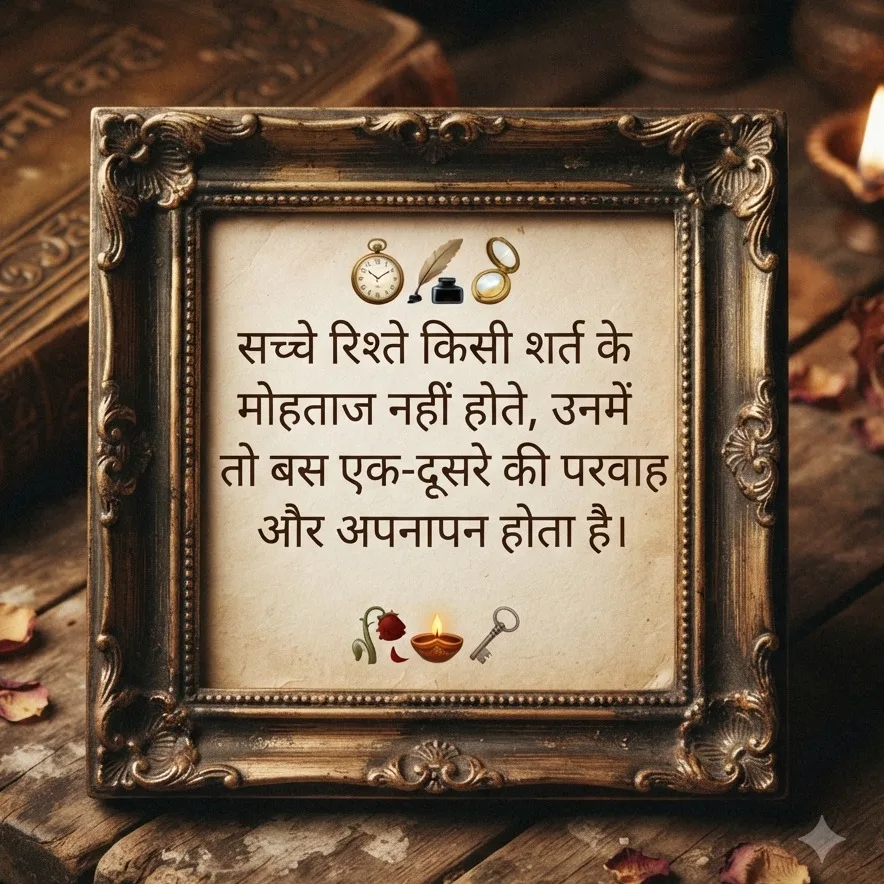 सच्चे रिश्ते किसी शर्त के
मोहताज नहीं होते, उनमें
तो बस एक-दूसरे की परवाह
और अपनापन होता है।